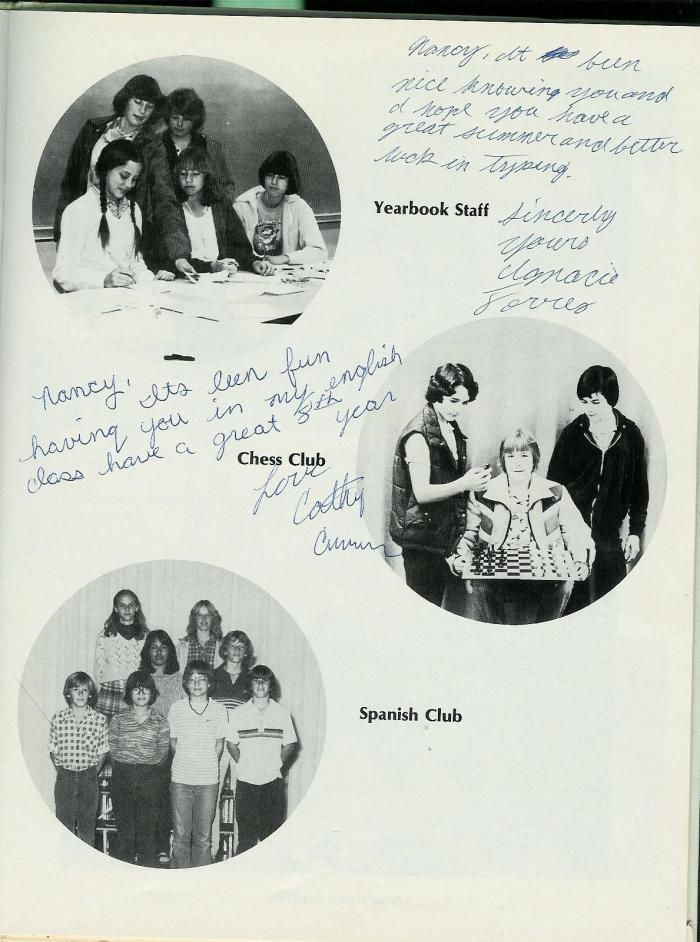 Nancy, It been
nice knowing you and
I hope you have a
great summer and better
luck in typing.
Yearbook Staff
Sincerly
Yours
Ignacio
Torres
Nancy,
Its been fun
having you in my english
class have a great 8th year
Chess Club
Love
Cathy
Spanish Club